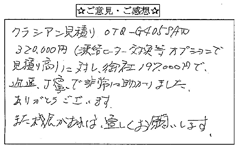 ☆ご意見・ご感想☆
クラシアン見積り OTQ-G405SAY
320,000円(凍結ヒーター交換等 オプションで
見積り高)に対し、御社197,000円で、
迅速、丁寧で非常に助かりました。
ありがとうございます。
また機会があれば、宜しくお願いします。